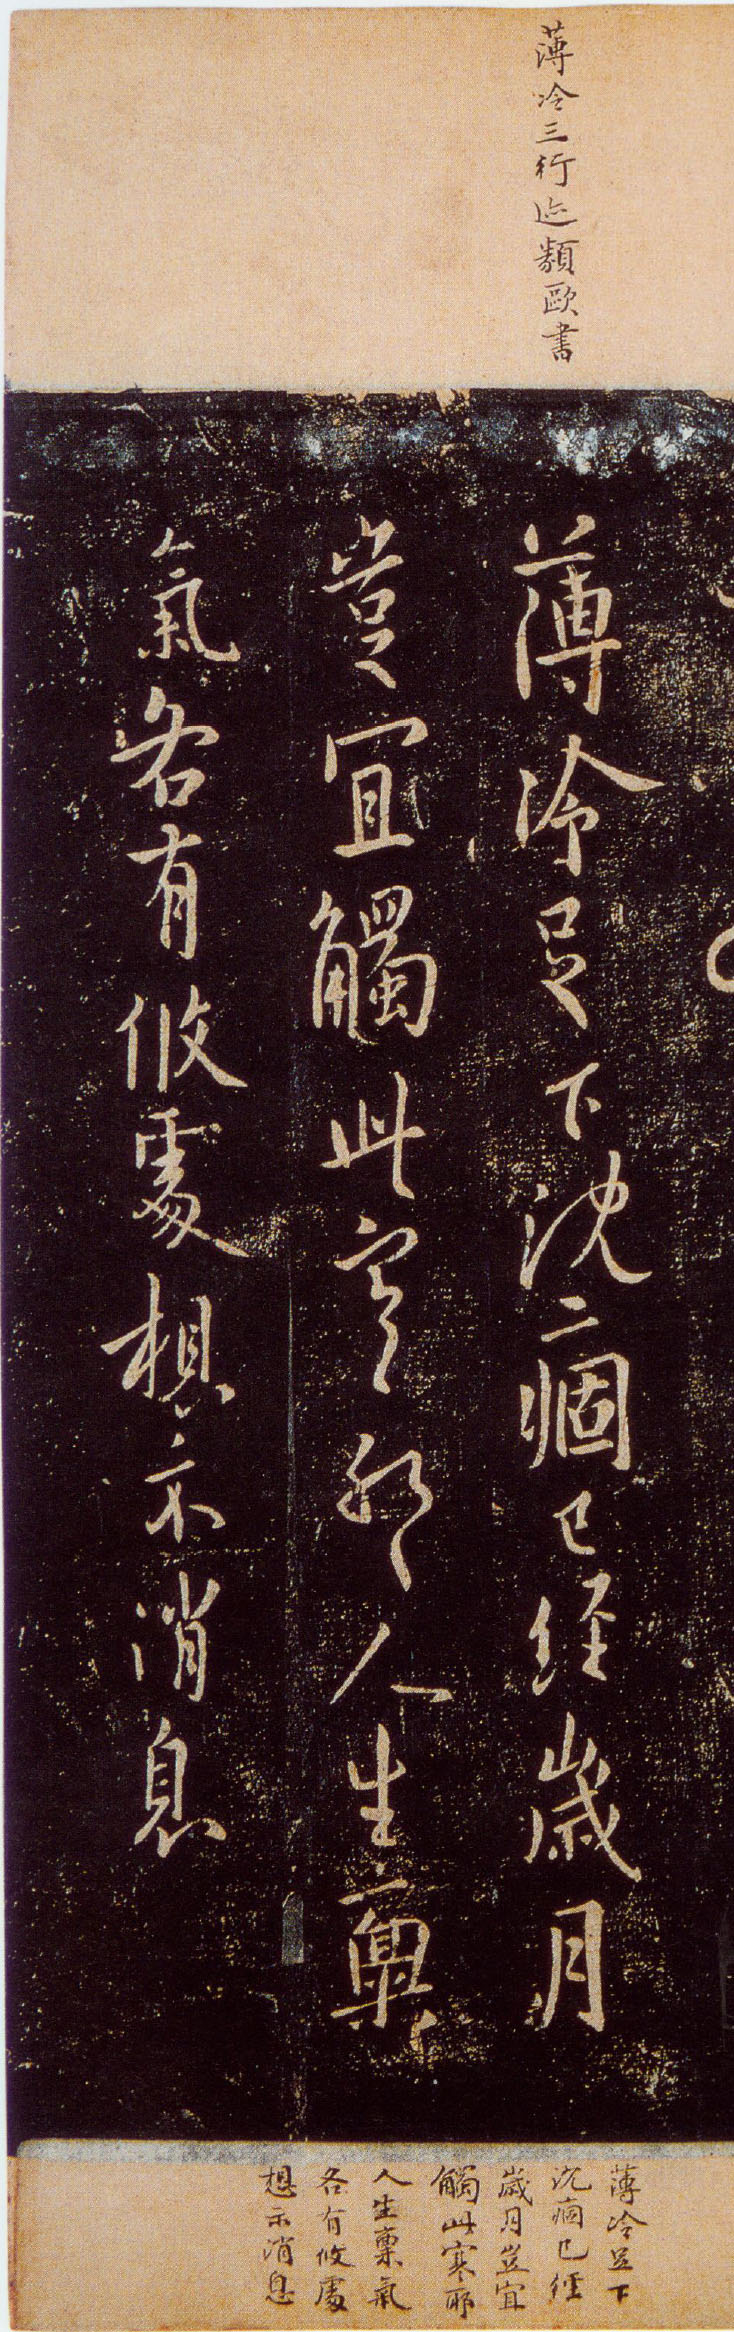 薄冷三行迹類歐書
薄冷足下沈痼已經歲月
豈宜觸此寒耶人生稟
氣各有攸處想示消息
薄冷足下
沉痼已經
歲月豈宜
觸此寒耶
人生稟氣
各有攸處
想示消息